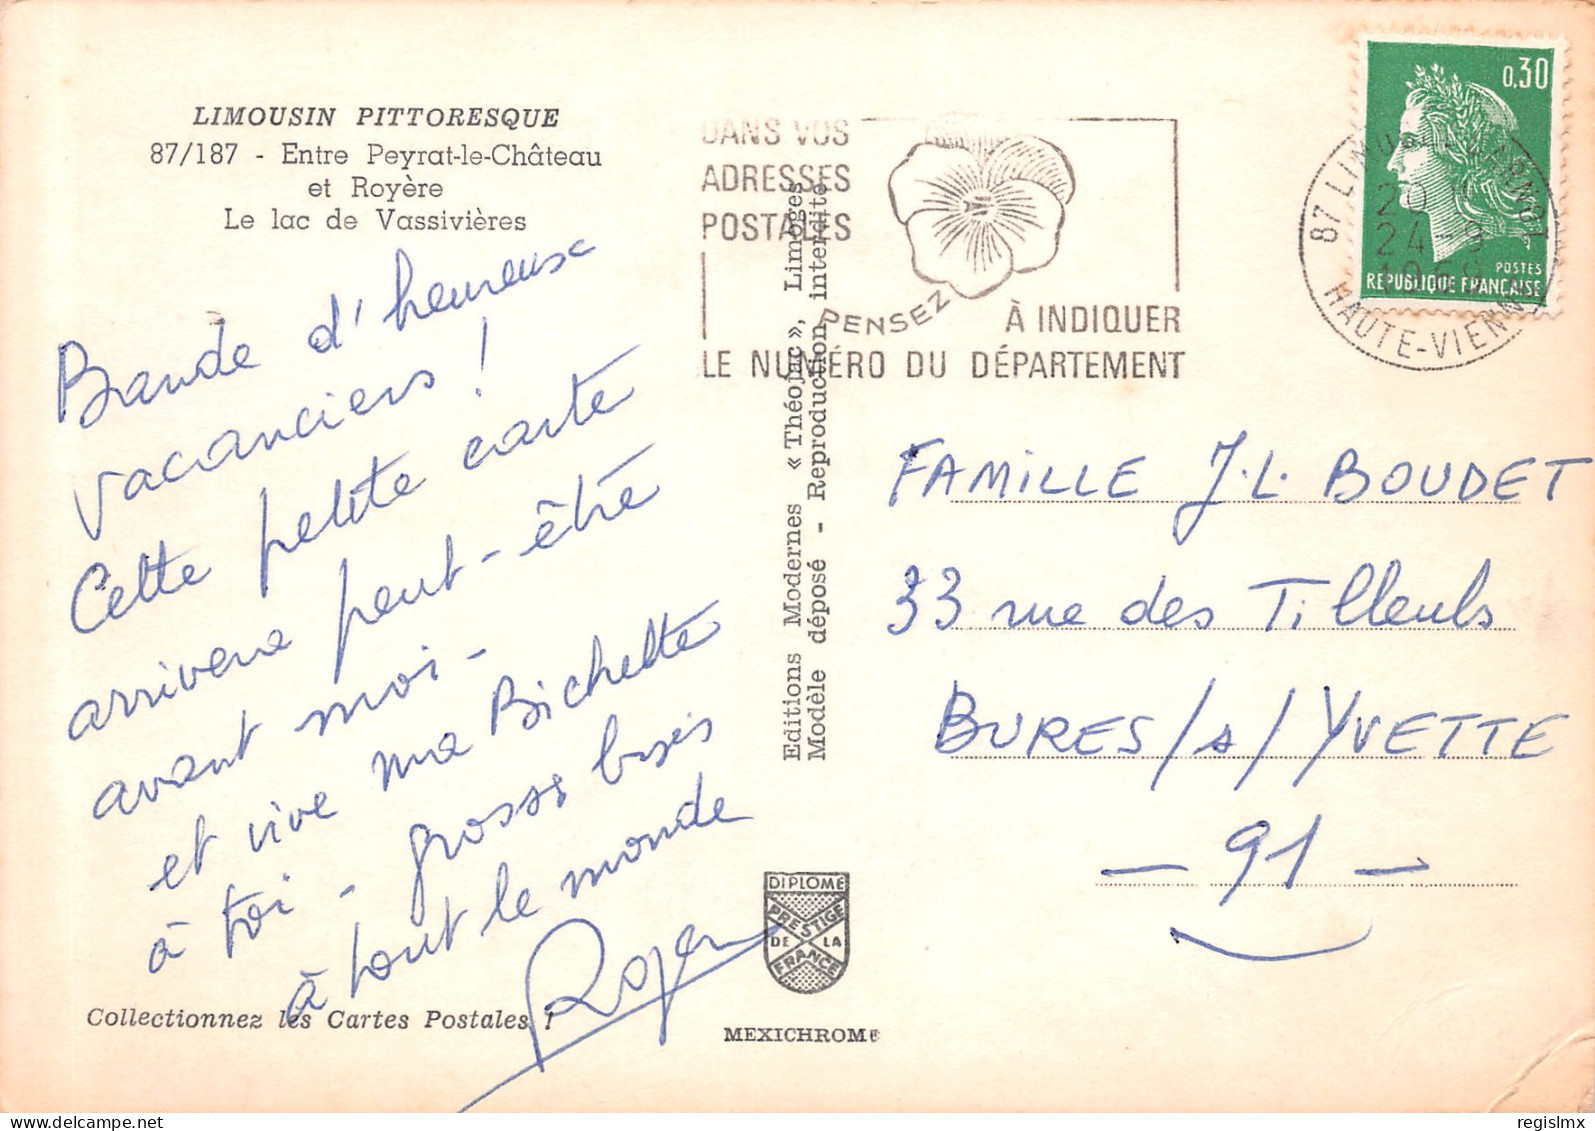 LIMOUSIN PITTORESQUE
87/187 - Entre Peyrat-le-Château
et Royère
Le lac de Vassivières
Bande d'heureux
vacanciers !
Cette petite carte
arrivera peut-être
avant moi -
et vive ma Bichette
à toi - grosses bises
à tout le monde
Roger
Collectionnez les Cartes Postales !
Editions Modernes « Théojac », Limoges
Modèle déposé - Reproduction interdite
DIPLOME
PRESTIGE
DE LA
FRANCE
MEXICHROME
DANS VOS
ADRESSES
POSTALES
PENSEZ
À INDIQUER
LE NUMÉRO DU DÉPARTEMENT
0,30
POSTES
REPUBLIQUE FRANÇAISE
87 LIMOGES
24-9
1969
HAUTE-VIENNE
FAMILLE J.L. BOUDET
33 rue des Tilleuls
BURES/s/YVETTE
- 91 -
regislmx